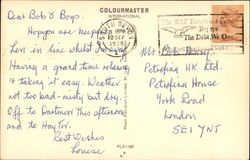 COLOURMASTER
INTERNATIONAL
Dear Bob & Boys.
Hope you are keeping
Len in line whilst
Having a grand time relaxing
& taking it easy. Weather
not too bad - misty but dry.
Off to Dartmoor this afternoon
and to Hay Tor.
Best Wishes
Louise
PLX1190
The RAF
Repay
The Debt We Owe
Mr Bob
Petrofina UK Ltd.
Petrofina House
York Road
London
SE1 7NT